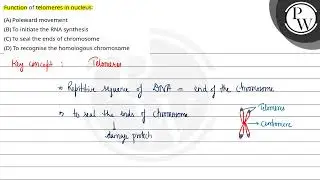 Function of telomeres in nucleus:
(A) Poleward movement
(B) To initiate the RNA synthesis
(C) To seal the ends of chromosome
(D) To recognise the homologous chromosome
PW
Key concept : Telomeres
→ Repititive sequence of DNA = end of the chromosome
→ to seal the ends of chromosome
damage protect
Telomere
Centromere